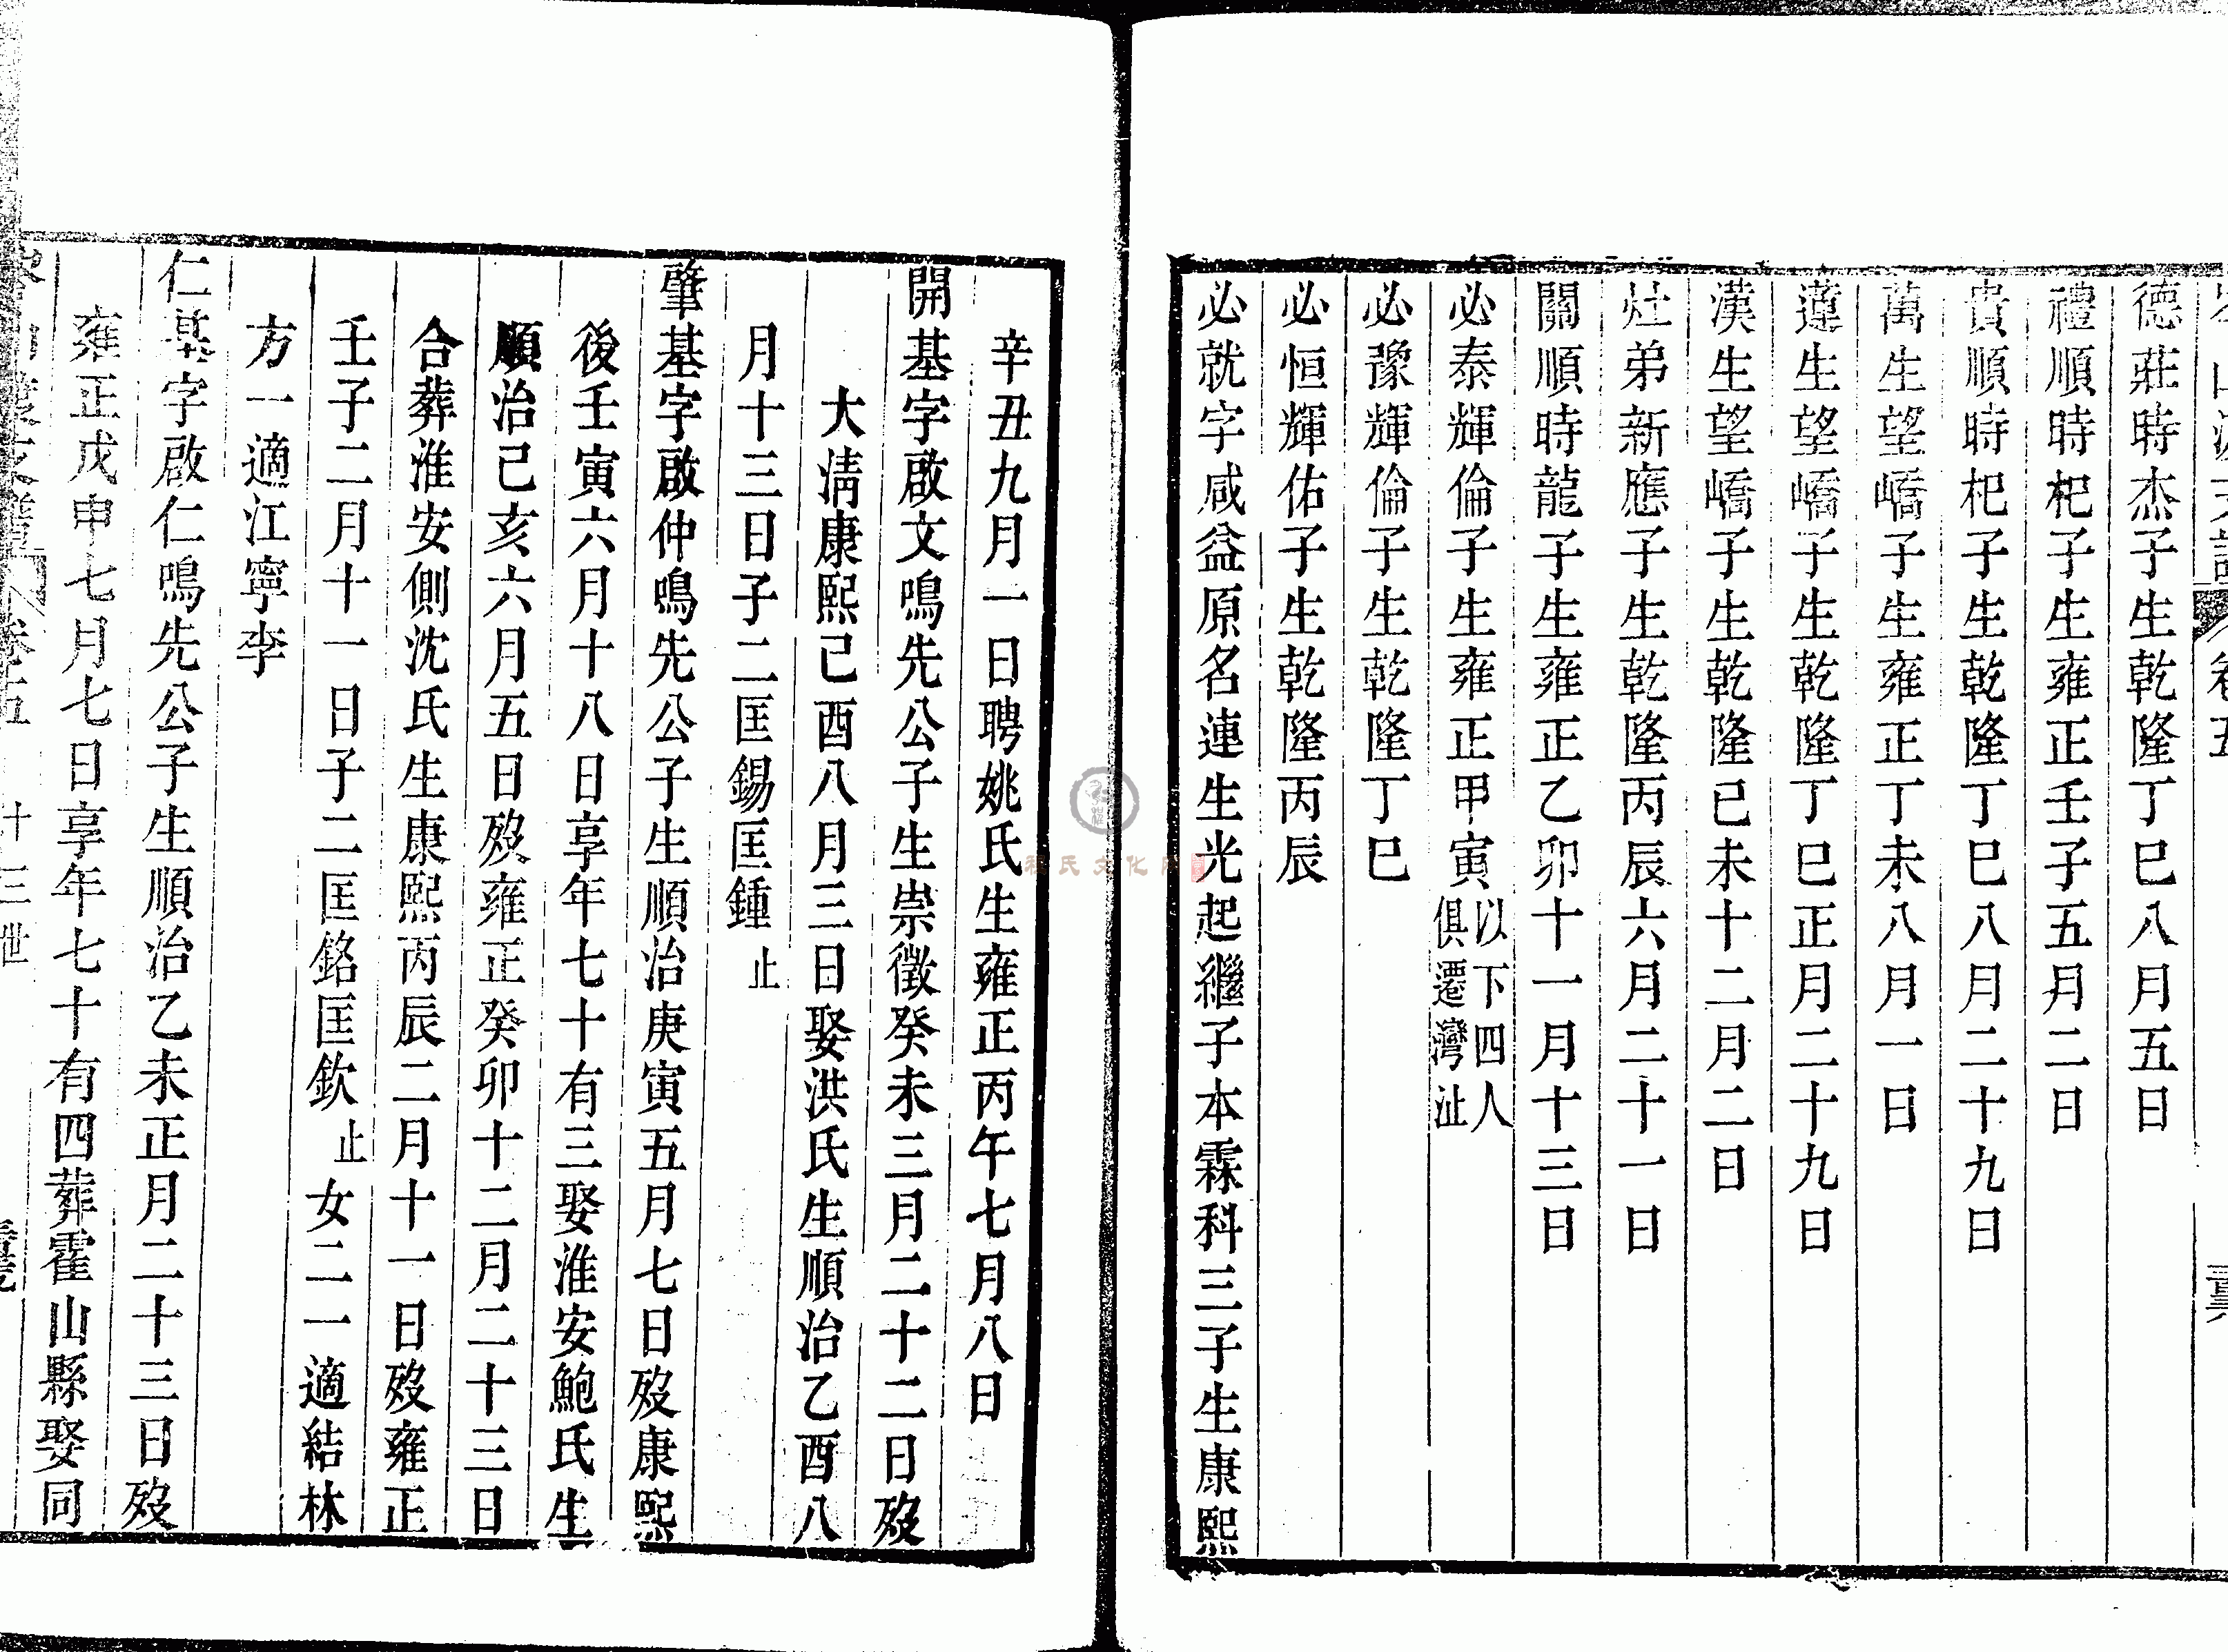 德莊時杰子生乾隆丁巳八月五日
禮順時杞子生雍正壬子五月二日
貴順時杞子生乾隆丁巳八月二十九日
萬生望嶠子生雍正丁未八月一日
蓮生望嶠子生乾隆丁巳正月二十九日
漢生望嶠子生乾隆己未十二月二日
灶弟新應子生乾隆丙辰六月二十一日
關順時龍子生雍正乙卯十一月十三日
必泰輝倫子生雍正甲寅以下四人俱遷灣沚
必豫輝倫子生乾隆丁巳
必恒輝佑子生乾隆丙辰
必就字咸益原名連生光起繼子本霖科三子生康熙
辛丑九月一日聘姚氏生雍正丙午七月八日
開基字啟文鳴先公子生崇徵癸未三月二十二日歿
大清康熙己酉八月三日娶洪氏生順治乙酉八
月十三日子二匡錫匡鍾止
肇基字啟仲鳴先公子生順治庚寅五月七日歿康熙
後壬寅六月十八日享年七十有三娶淮安鮑氏生
順治己亥六月五日歿雍正癸卯十二月二十三日
合葬淮安側沈氏生康熙丙辰二月十一日歿雍正
壬子二月十一日子二匡銘匡欽止女二一適結林
方一適江寧李
仁基字啟仁鳴先公子生順治乙未正月二十三日歿
雍正戊申七月七日享年七十有四葬霍山縣娶同
卷五 十三世